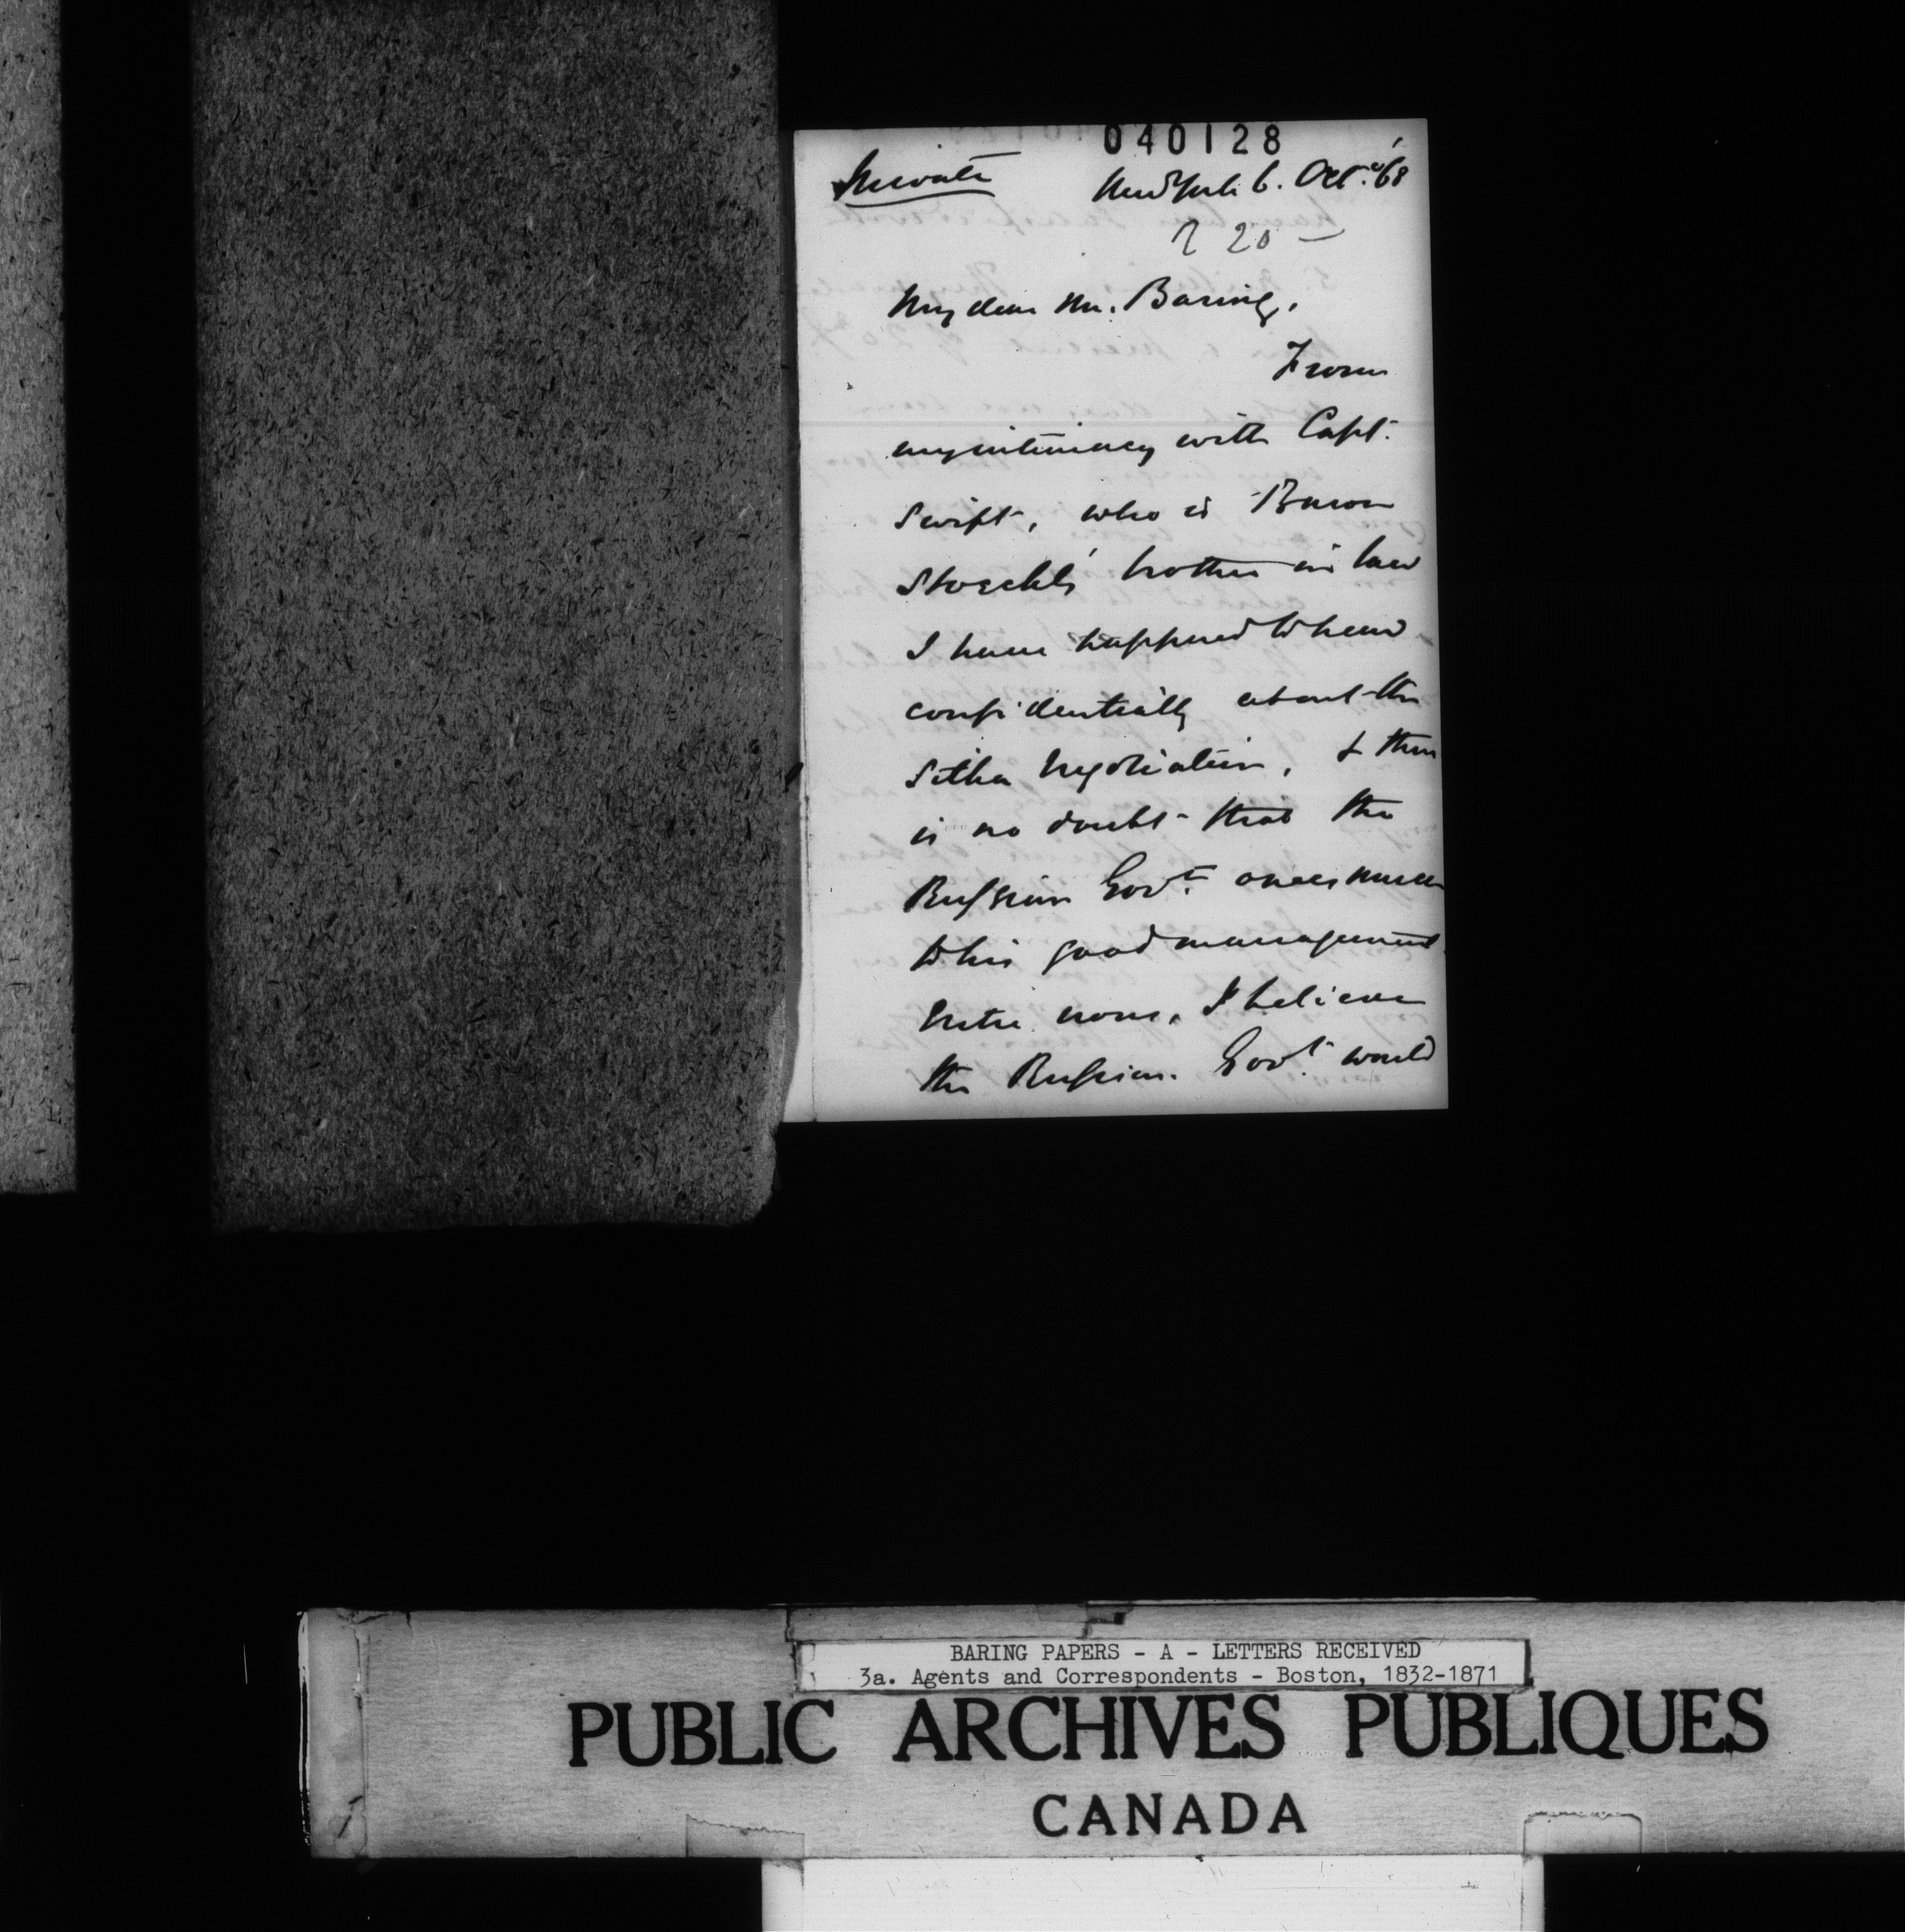 040128
Private
New York 6. Oct. '68
R 20 —
My dear Mr. Baring,
From
my intimacy with Capt.
Swift, who is Baron
Stoeckl's brother in law
I have happened to hear
confidentially about the
Sitka negotiation, & there
is no doubt that the
Russian Govt. owes much
to his good management.
Entre nous, I believe
the Russian Govt. would
BARING PAPERS - A - LETTERS RECEIVED
3a. Agents and Correspondents - Boston, 1832-1871
PUBLIC ARCHIVES PUBLIQUES
CANADA